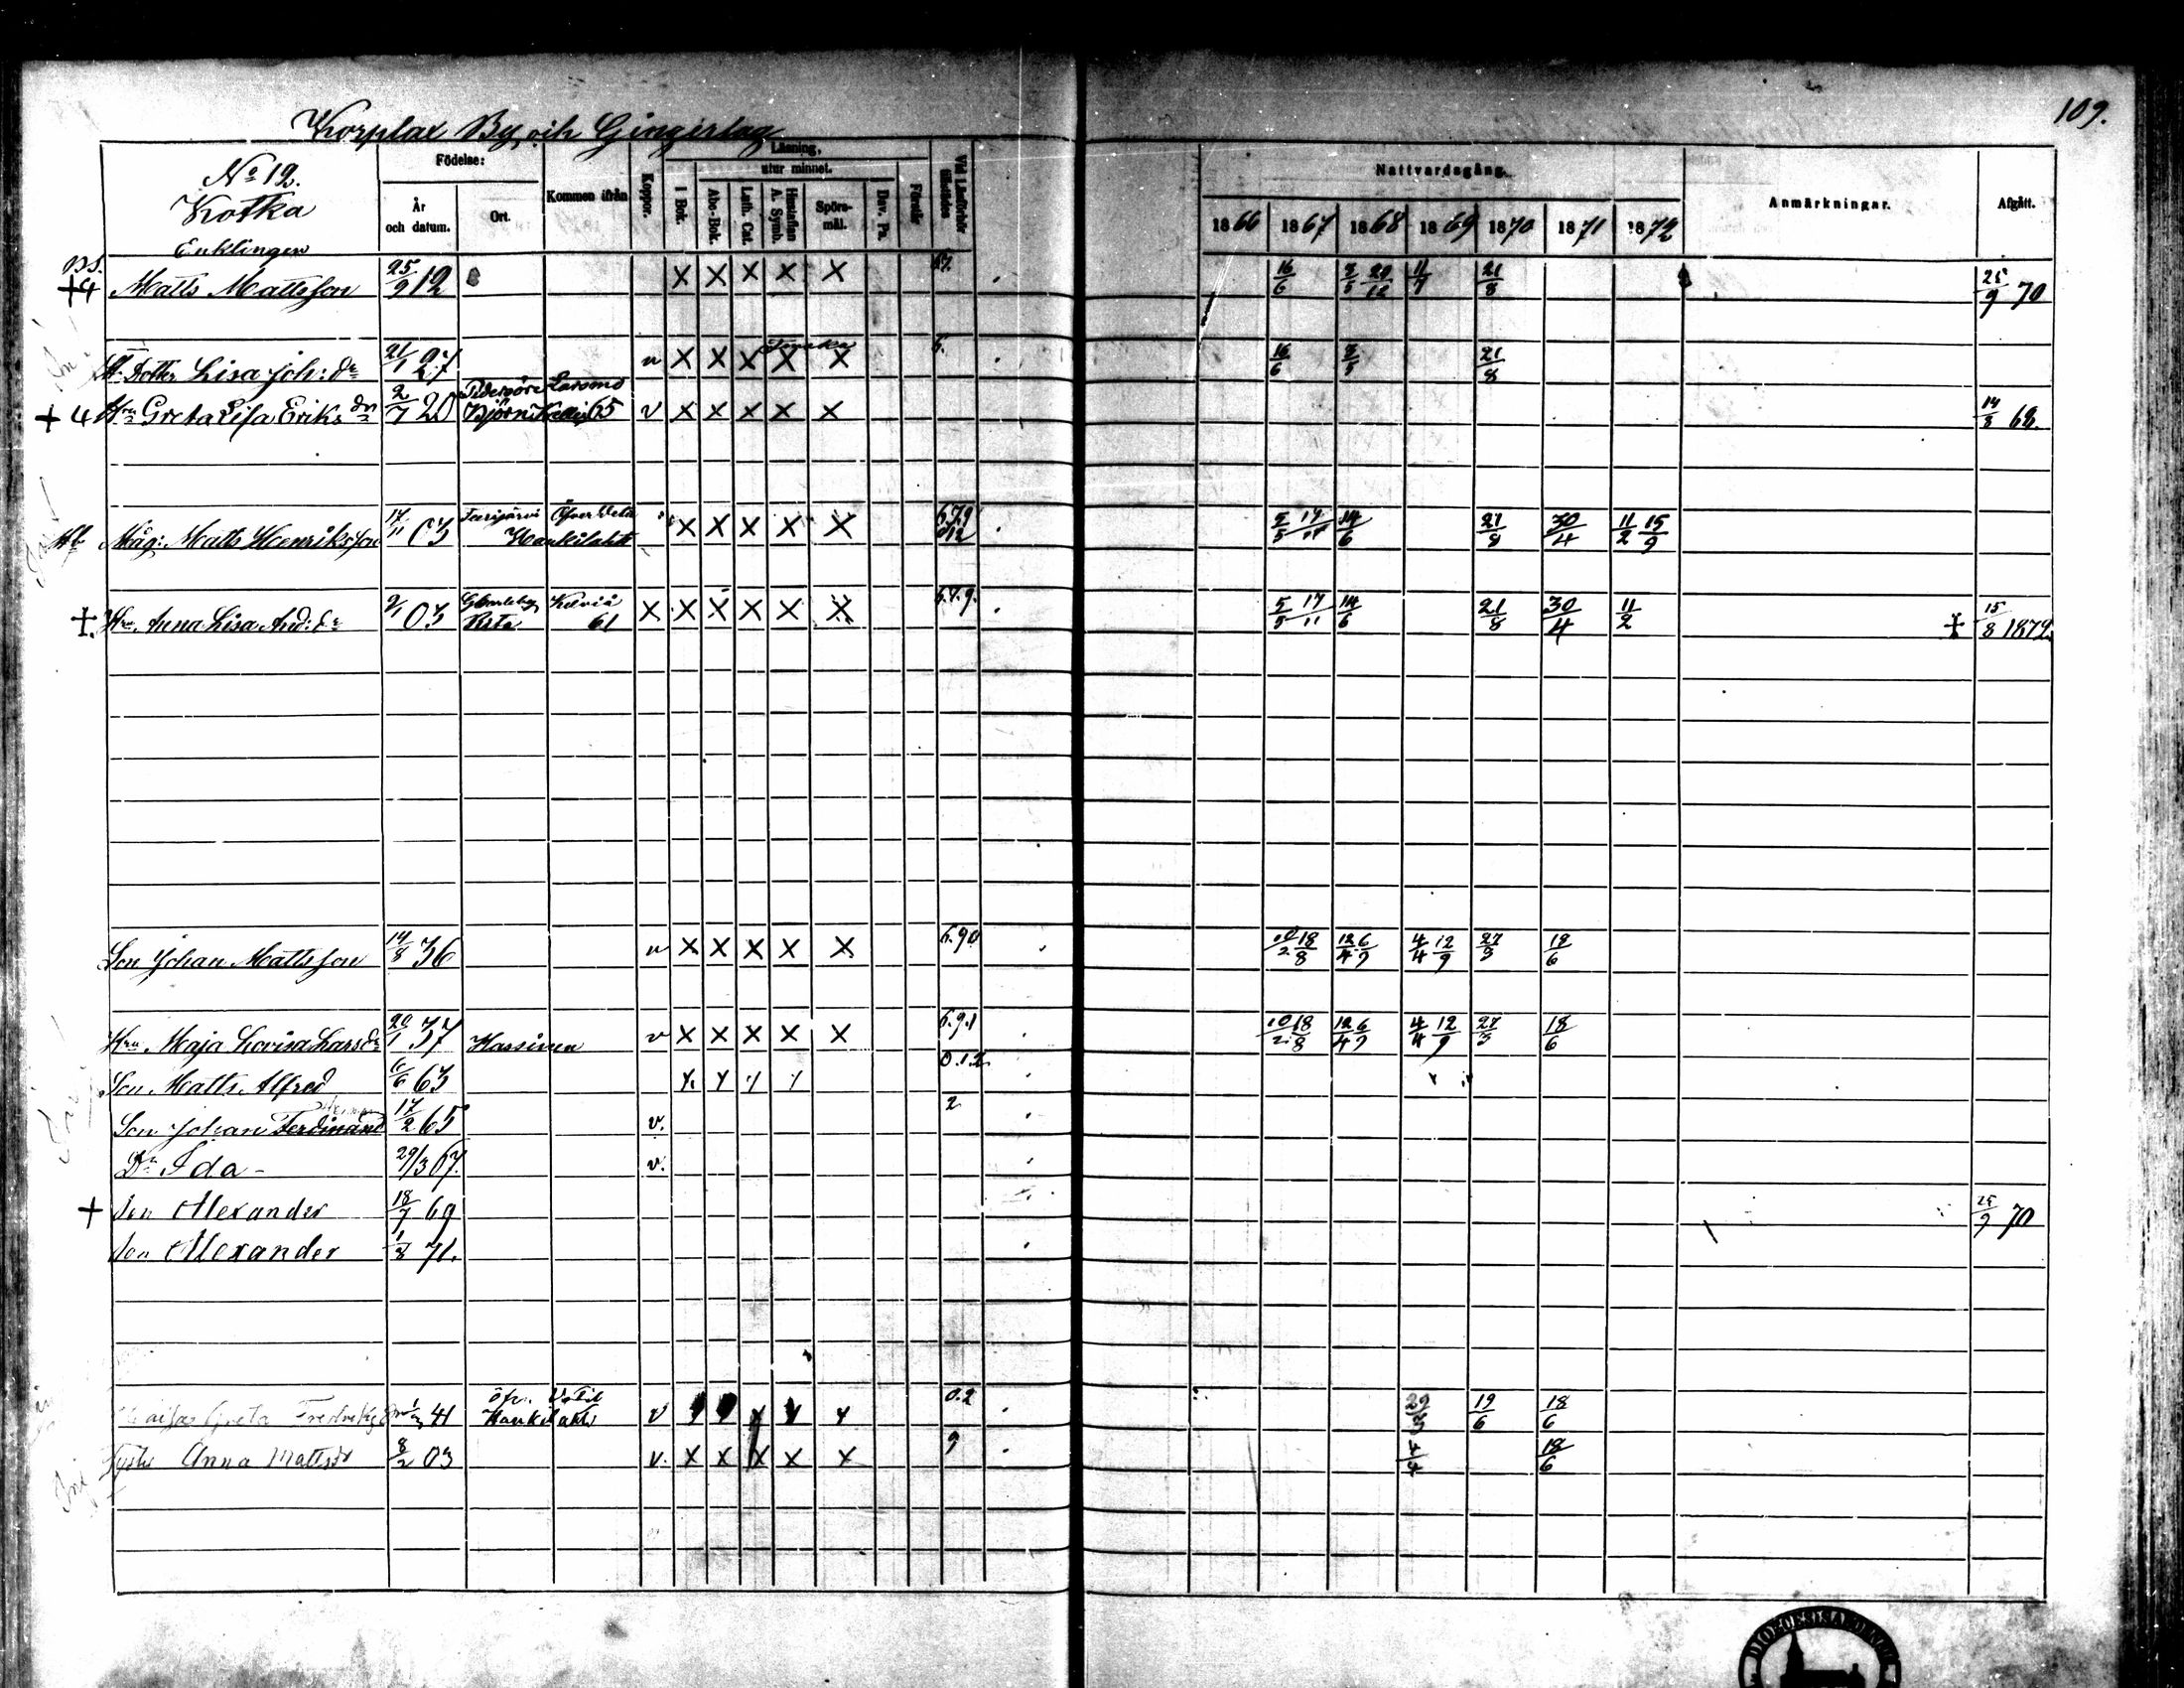 109.
Korplax By och Gingerlag
No 12.
Kotka
Enklingen
Födelse:
År och datum.
Ort.
Kommen ifrån
Koppor.
Läsning,
utur minnet.
I Bok.
Abc-Bok.
Luth. Cat.
Hustaflan A. Symb.
Spörs-mål.
Dav. Ps.
Förstår
Vid Läsförhör tillstädes
Nattvardsgång.
1866 1867 1868 1869 1870 1871 1872
Anmärkningar.
Afgått.
+ Matts Mattsson 25/9 12 X X X X X 67. 16/6 20/12 11/7 21/8 25/9 70
Dotter Lisa Joh: dr 21/1 27 v X X X X X 16/6 21/8
+ 4 Hu Greta Lisa Eriks dr 2/7 20 Pedersöre Larsmo 65 v X X X X X 14/8 68
Måg: Matts Henriksson 17/11 03 Öfver Vetil Kaukilaht X X X X X 5/5 17/11 14/6 21/8 30/4 11/2 15/9
+ Hu Anna Lisa And: dr 9/1 03 GCarleby Kelviå 61 X X X X X X 6.7.9. 5/5 17/11 14/6 21/8 30/4 11/2 + 15/8 1872
Son Johan Mattsson 14/8 36 v X X X X X 6.90 10/2 18/8 12/4 6/9 4/4 12/9 27/3 18/6
Hru Maja Lovisa Larsdr 20/1 37 Kassinen v X X X X X 6.9.1 10/2 18/8 12/4 6/9 4/4 12/9 27/3 18/6
Son Matts Alfred 6/6 63 0.1.2
Son Johan Ferdinand 17/2 65 v. 2
Dr Ida - 29/3 67. v.
+ Son Alexander 18/7 69 25/9 70
Son Alexander 1/8 71.
Greta 41 öfv. Vetil Kaukilakti v 0.2 29/3 19/6 18/6
Anna Mattsdr 8/2 03 v. X X X X X 9 4/4 18/6